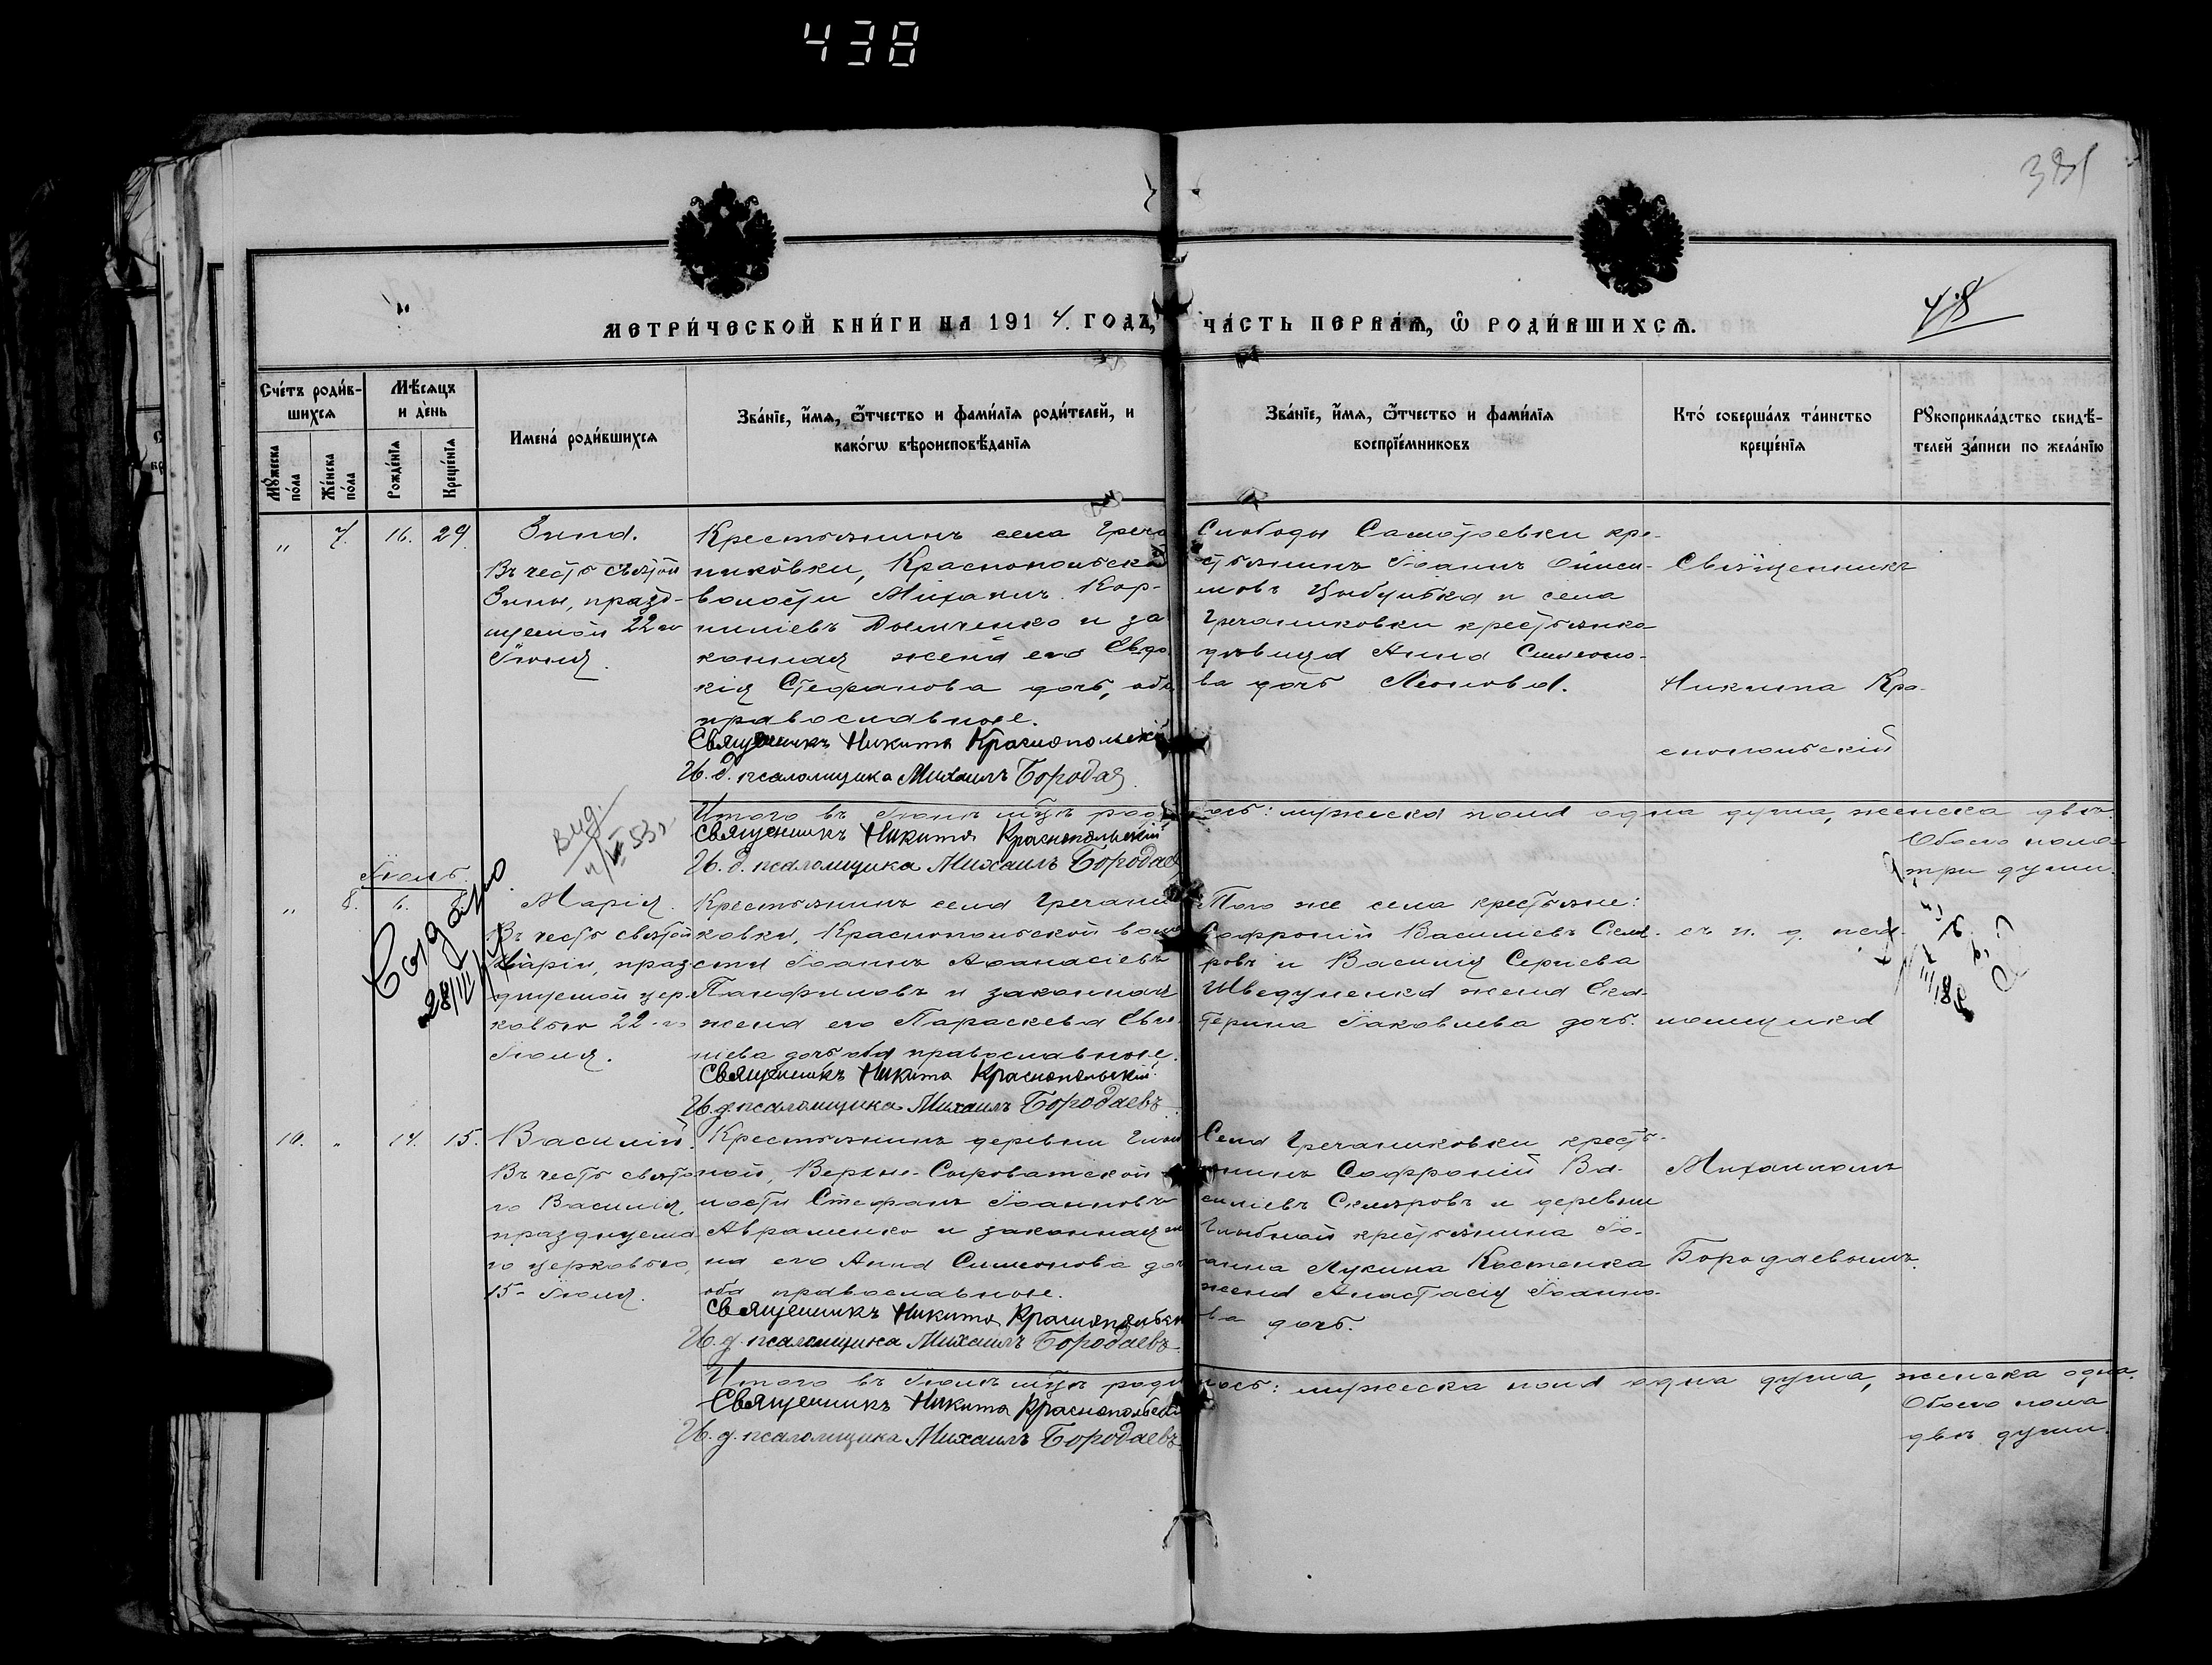 438
381
48
МЕТРИ́ЧЕСКОЙ КНИ́ГИ НА 1914. ГОДЪ, ЧА́СТЬ ПЕРВАѦ, Ѿ РОДИ́ВШИХСѦ.
Сче́тъ роди́в-
шихсѧ
Мꙋ́жеска по́ла
Же́нска по́ла
Мѣ́сѧцъ
и де́нь
Рожде́нїѧ
Креще́нїѧ
Имена̀ роди́вшихсѧ
Зва́нїе, и́мѧ, ѻ҆́тчество и фами́лїѧ роди́телей, и
како́гѡ вѣроисповѣ́данїѧ
Зва́нїе, и́мѧ, ѻ҆́тчество и фами́лїѧ
воспрїе́мниковъ
Кто́ соверша́лъ та́инство
креще́нїѧ
Рꙋкоприкла́дство свидѣ́-
телей за́писи по жела́нїю
" 7. 16. 29.
Зина.
Въ честь святой
Зины, празд-
нуемой 22-го
Іюня.
Крестьянинъ села Греча
никовки, Краснопольской
волости Михаилъ Кор-
ниліевъ Домченко и за
конная жена его Евдо
кія Стефанова дочь, оба
православные.
Священникъ Никита Краснопольскій
И. д. псаломщика Михаилъ Бородаев
Слободы Самотоевки кре-
стьянинъ Іоаннъ
мовъ Цыбулька и села
Гречаниковки крестьянка
дѣвица Анна Симеоно-
ва дочь Леонова.
Священникъ
Никита Кра-
снопольскій
Итого въ Іюнѣ мцѣ родилось: мужеска пола одна душа, женска двѣ.
Обоего пола
три души.
Священникъ Никита Краснопольскій
И. д. псаломщика Михаилъ Бородаев
вид.
53 г
Іюль.
" 8. 6.
Создано
28/II
Марія.
Въ честь святой
Маріи, праз-
днуемой цер-
ковью 22-го
Іюля.
Крестьянинъ села Гречани
ковки, Краснопольской воло
сти Іоаннъ Аѳанасіевъ
Панфиловъ и законная
жена его Параскева Евге-
ніева дочь оба православные.
Священникъ Никита Краснопольскій
И. д. псаломщика Михаилъ Бородаевъ
Того же села крестьяне:
Софроній Василіевъ
ровъ и Василія Сергіева
Шведуненка жена Ека-
терина Іаковлева дочь.
съ и. д. пса-
ломщика
10. " 14. 15.
Василій.
Въ честь свято
го Василія,
празднуемо
го церковью,
15- Іюля.
Крестьянинъ деревни Глыб
ной, Верхне-Сыроватской во
лости Стефанъ Іоанновъ
Авраменко и законная же
на его Анна Симеонова доч
оба православные.
Священникъ Никита Краснопольскій
И. д. псаломщика Михаилъ Бородаевъ
Села Гречаниковки кресть-
янинъ Софроній Ва-
силіевъ и деревни
Глыбной крестьянина Іо-
анна Лукина Костенка
жена Анастасія Іоанно-
ва дочь.
Михаиломъ
Бородаевымъ.
Итого въ Іюлѣ мцѣ родилось: мужеска пола одна душа, женска одна.
Обоего пола
двѣ души.
Священникъ Никита Краснопольскій
И. д. псаломщика Михаилъ Бородаевъ